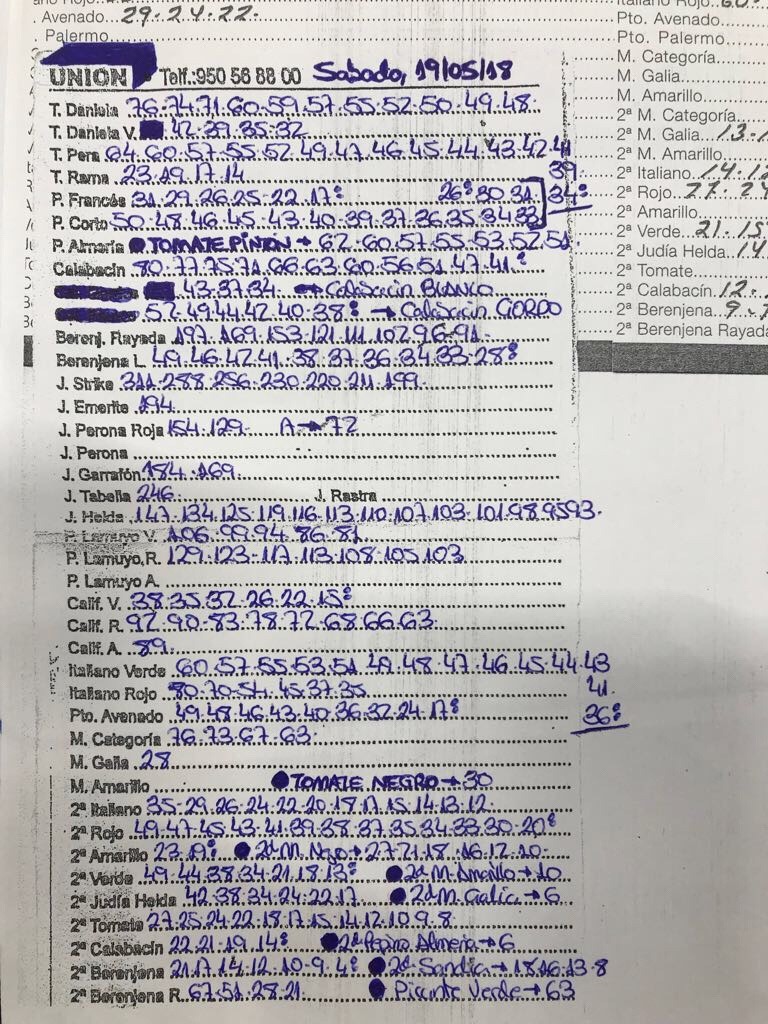 Avenado 29.24.22.
Palermo
UNION Telf.: 950 56 88 00 Sabado, 19/05/18
T. Daniela 76.74.71.60.59.57.55.52.50.49.48.
T. Daniela V. 42.39.35.32
T. Pera 64.60.57.55.52.49.47.46.45.44.43.42.41
39
T. Rama 23.19.17.14
P. Francés 31.29.26.25.22.17º 26º 30 31 34º
P. Corto 50.48.46.45.43.40.39.37.36.35.34.33
P. Almería TOMATE PIÑON → 62.60.57.55.53.52.51
Calabacín 80.77.75.71.66.63.60.56.51.47.41.º
43.37.34. → Calabacin BLANCO
52.49.44.42.40.38º → Calabacin GORDO
Berenj. Rayada 197.169.153.121.111.102.96.91
Berenjena L. 49.46.42.41.38.37.36.34.33.28º
J. Strike 311.288.256.230.220.211.199.
J. Emerite 194
J. Perona Roja 154.129. A → 72
J. Perona
J. Garrafón 184.169.
J. Tabella 246 J. Rastra
J. Helda 147.134.125.119.116.113.110.107.103.101.98.95 93.
P. Lamuyo V. 106.99.94.86.81
P. Lamuyo, R. 129.123.117.113.108.105.103
P. Lamuyo A.
Calif. V. 38.35.32.26.22.15º
Calif. R. 92.90.83.78.72.68.66.63
Calif. A. 89.
Italiano Verde 60.57.55.53.51.49.48.47.46.45.44.43
41.
Italiano Rojo 80.70.54.45.37.35
36º
Pto. Avenado 49.48.46.43.40.36.32.24.17º
M. Categoría 76.73.67.63
M. Galia 28
M. Amarillo TOMATE NEGRO → 30
2ª Italiano 35.29.26.24.22.20.18.17.15.14.13.12
2ª Rojo 49.47.45.43.41.39.38.37.35.34.33.30.20º
2ª Amarillo 23.19º 2ªM. Negro → 27.21.18.16.12.10
2ª Verde 49.44.38.34.21.18.13º 2ªM. Amarillo → 10
2ª Judía Helda 42.38.34.24.22.17 2ªM. Galia → 6
2ª Tomate 27.25.24.22.18.17.15.14.12.10.9.8
2ª Calabacín 22.21.19.14º 2ª Pepino Almeria → 6
2ª Berenjena 21.17.14.12.10.9.4º 2ª Sandia → 18.16.13.8
2ª Berenjena R. 67.51.28.21 Picante Verde → 63
Italiano Rojo
Pto. Avenado
Pto. Palermo
M. Categoría
M. Galia
M. Amarillo
2ª M. Categoría
2ª M. Galia
2ª M. Amarillo
2ª Italiano
2ª Rojo
2ª Amarillo
2ª Verde
2ª Judía Helda
2ª Tomate
2ª Calabacín
2ª Berenjena
2ª Berenjena Rayada